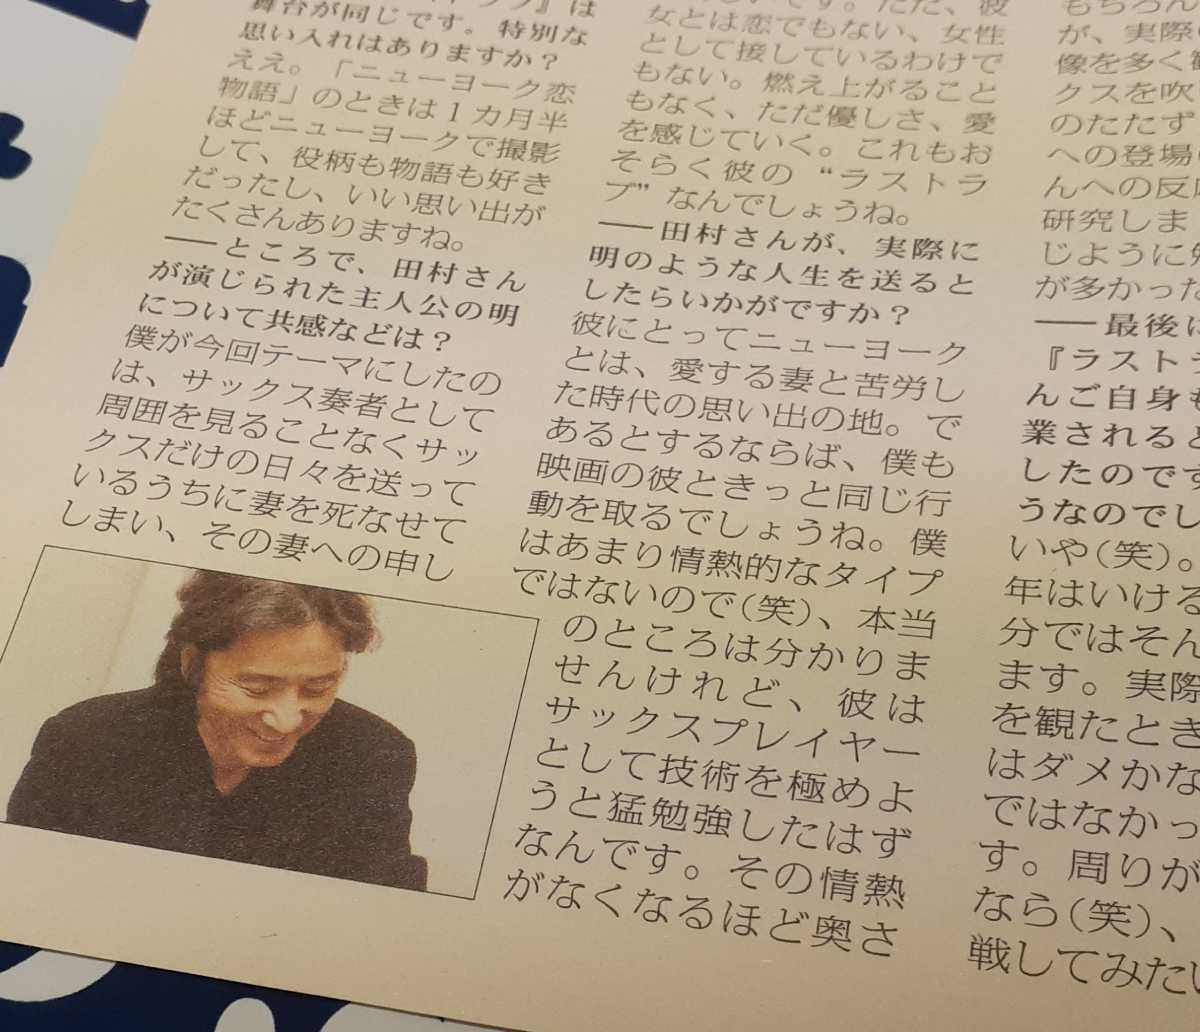 舞台が同じです。特別な
思い入れはありますか?
ええ。「ニューヨーク恋
物語」のときは1カ月半
ほどニューヨークで撮影
して、役柄も物語も好き
だったし、いい思い出が
たくさんありますね。
──ところで、田村さん
が演じられた主人公の明
について共感などは?
僕が今回テーマにしたの
は、サックス奏者として
周囲を見ることなくサッ
クスだけの日々を送って
いるうちに妻を死なせて
しまい、その妻への申し
女とは恋でもない、女性
として接しているわけで
もない。燃え上がること
もなく、ただ優しさ、愛
を感じていく。これもお
そらく彼の“ラストラ
ブ”なんでしょうね。
──田村さんが、実際に
明のような人生を送ると
したらいかがですか?
彼にとってニューヨーク
とは、愛する妻と苦労し
た時代の思い出の地。で
あるとするならば、僕も
映画の彼ときっと同じ行
動を取るでしょうね。僕
はあまり情熱的なタイプ
ではないので(笑)、本当
のところは分かりま
せんけれど、彼は
サックスプレイヤー
として技術を極めよ
うと猛勉強したはず
なんです。その情熱
がなくなるほど奥さ
もちろん
が、実際
像を多く
クスを吹
のたたず
への登場
んへの反
研究しま
じように
が多かった
──最後に
『ラストラ
んご自身も
業されると
したのです
うなのでし
いや(笑)。
年はいける
分ではそん
ます。実際
を観たとき
はダメかな
ではなかっ
す。周りが
なら(笑)、
戦してみたい